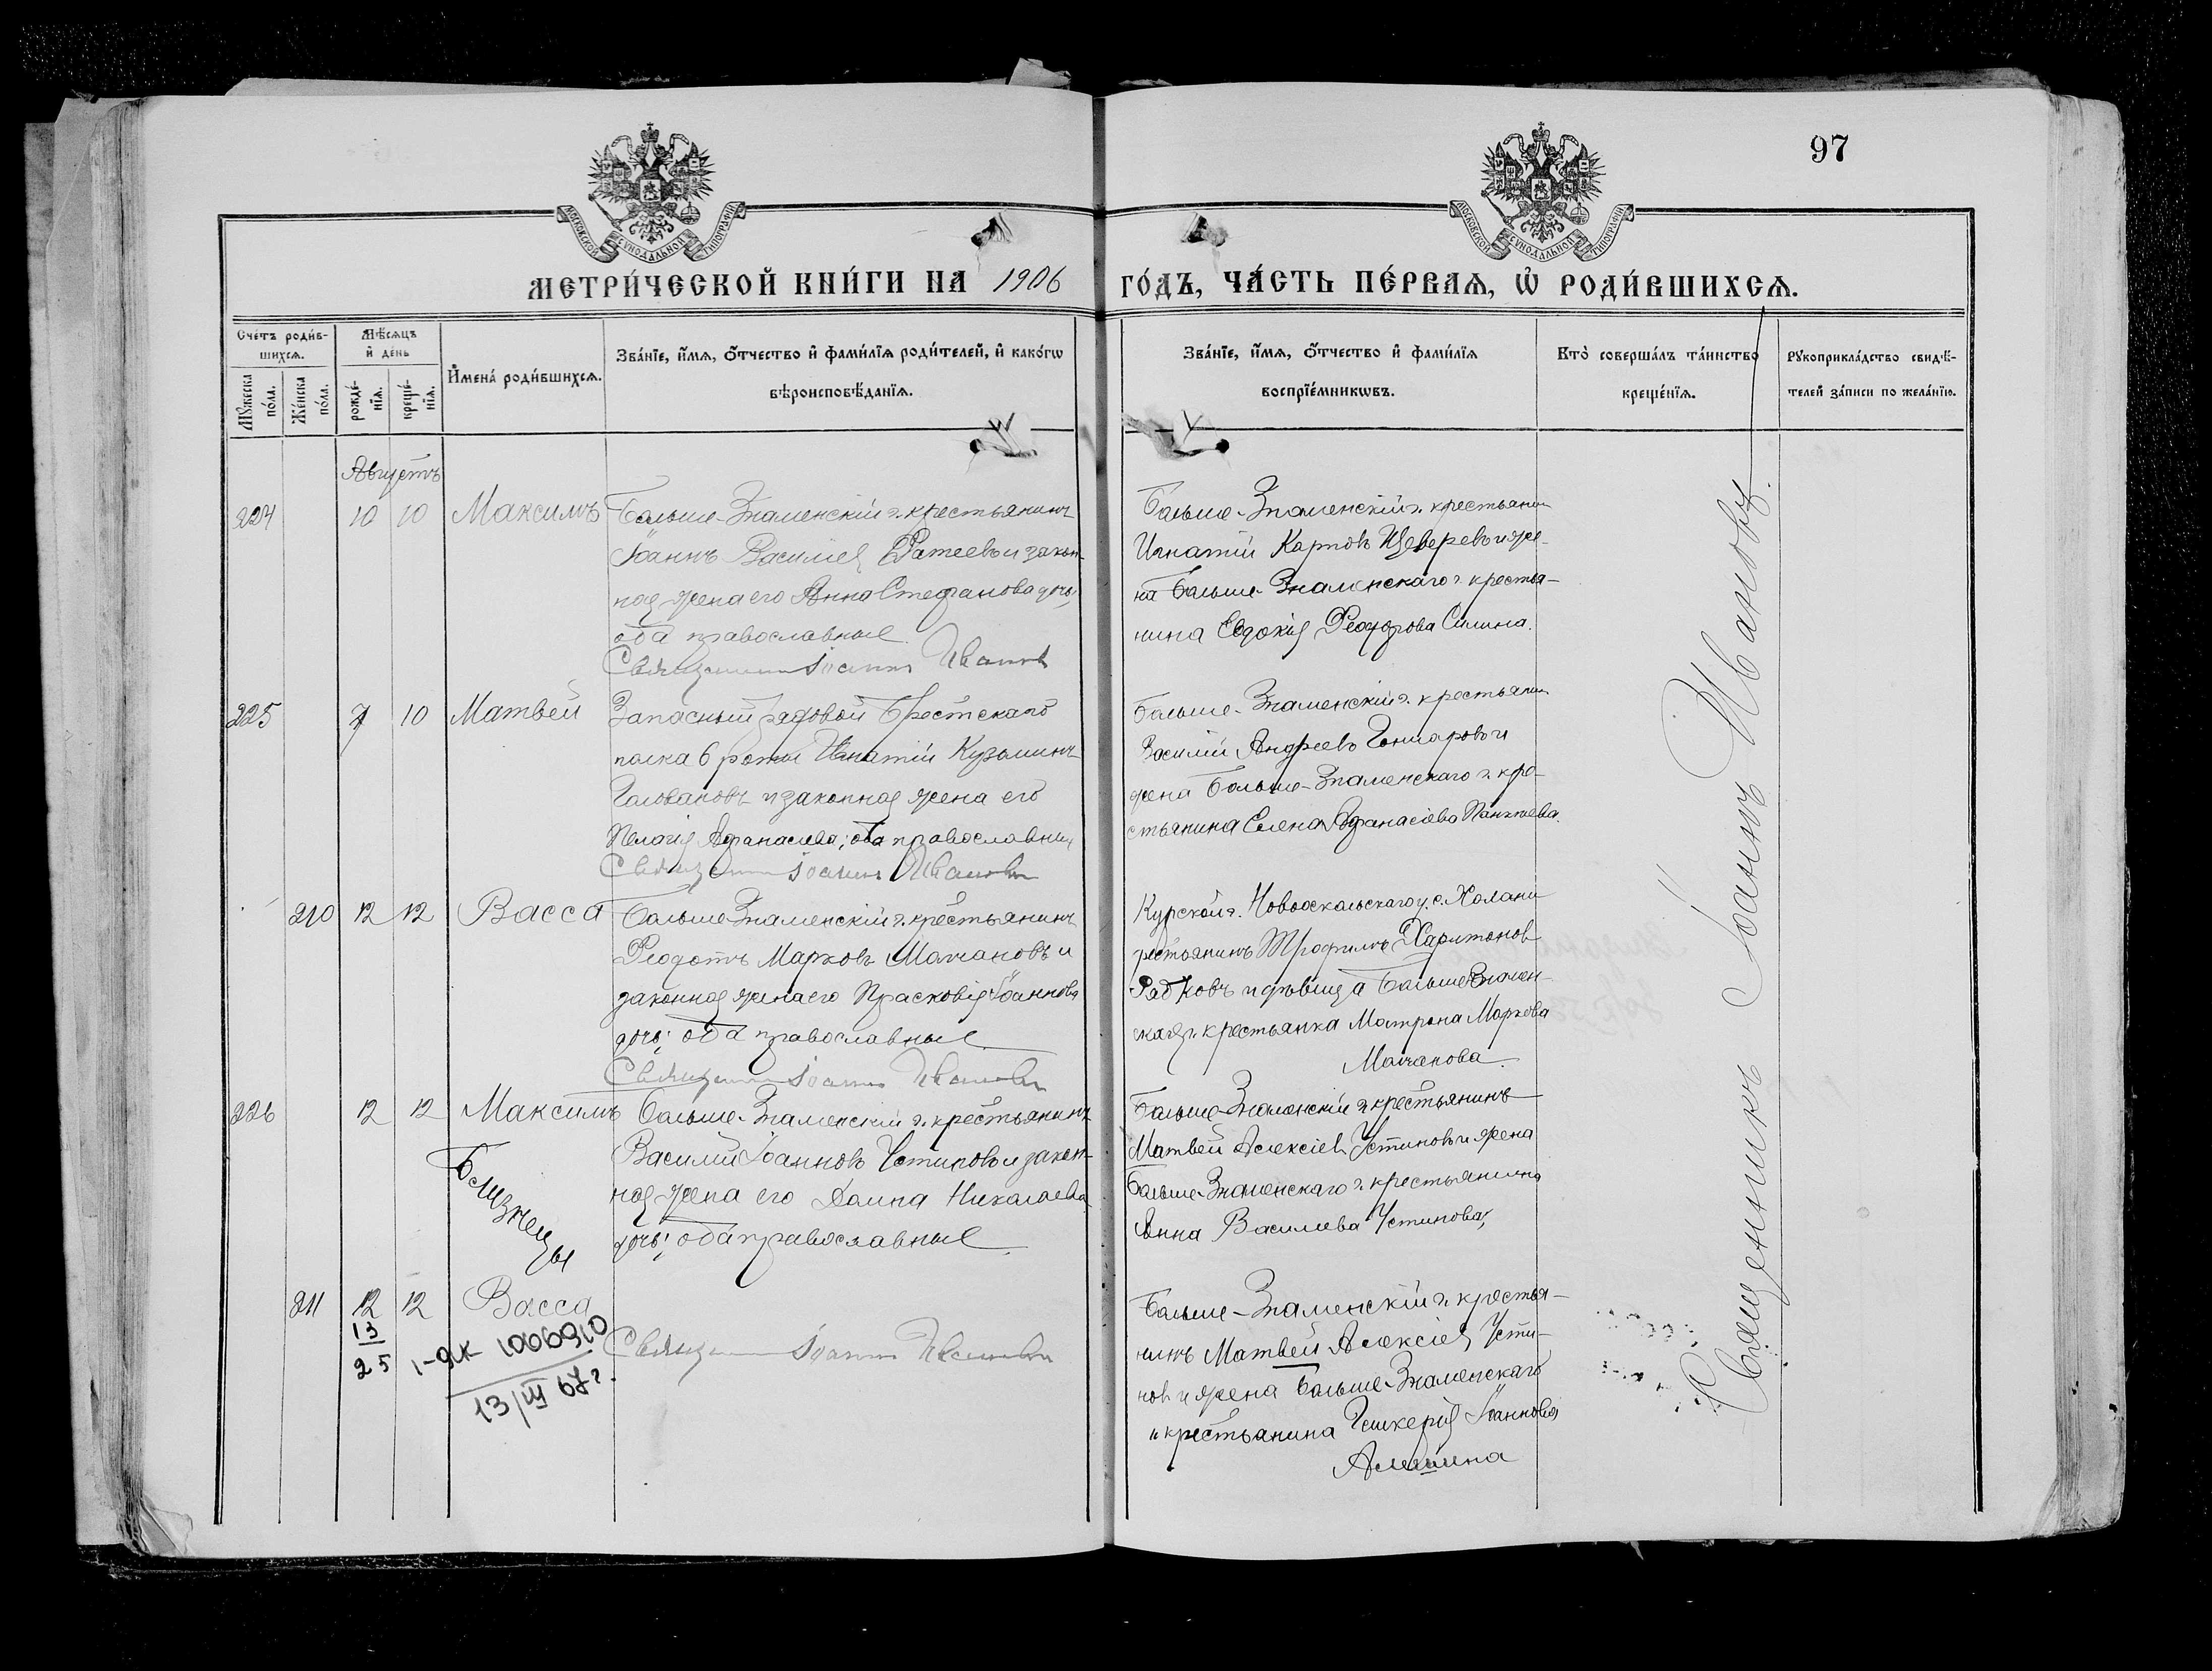 97
МОСКОВСКОЙ СѴНОДАЛЬНОЙ ТИПОГРАФІИ
МОСКОВСКОЙ СѴНОДАЛЬНОЙ ТИПОГРАФІИ
МЕТРИ́ЧЕСКОЙ КНИ́ГИ НА 1906 ГО́ДЪ, ЧА́СТЬ ПЕ́РВАѦ, Ѡ҆ РОДИ́ВШИХСѦ.
Сче́тъ роди́в-
шихсѧ.
Мꙋ́жеска
по́ла.
Же́нска
по́ла.
Мѣ́сѧцъ
и҆ де́нь
рожде́-
нїѧ.
креще́-
нїѧ.
И҆мена̀ роди́вшихсѧ.
Зва́нїе, и҆́мѧ, ѻ҆́тчество и҆ фами́лїѧ роди́телей, и҆ како́гѡ
вѣроисповѣ́данїѧ.
Зва́нїе, и҆́мѧ, ѻ҆́тчество и҆ фами́лїѧ
воспрїе́мникѡвъ.
Кто̀ соверша́лъ та́инство
креще́нїѧ.
Рꙋкоприкла́дство свидѣ́-
телей за́писи по жела́нїю.
Августъ
224 10 10 Максимъ
Больше-Знаменскій г. крестьянинъ
Іоаннъ Василіев Фатеевъ и закон-
ная жена его Анна Стефанова дочь,
оба православные
Священникъ Іоаннъ Иванов
Больше-Знаменскій г. крестьянин
Игнатій Карповъ Щеверевъ и же-
на Больше-Знаменскаго г. крестья-
нина Евдокія Феодорова Силина.
225 7 10 Матвей
Запасный рядовой Брестскаго
полка 6 роты Игнатій Кузьминъ
Головановъ и законная жена его
Пелагія Афанасиева; оба православные
Священникъ Іоаннъ Иванов
Больше-Знаменскій г. крестьянин
Василій Андреевъ Гончаровъ и
жена Больше-Знаменскаго г. кре-
стьянина Елена Афанасіева
210 12 12 Васса
Больше-Знаменскій г. крестьянинъ
Феодотъ Марковъ Молчановъ и
законная жена его Прасковія Іоаннова
дочь; оба православные
Священникъ Іоаннъ Иванов
Курской г. Новооскольскаго у. с. Холани
крестьянинъ Трофимъ Харитонов
Рабковъ и дѣвица Больше-Знамен-
ская г. крестьянка Матрона Маркова
Молчанова
226 12 12 Максимъ
Больше-Знаменскій г. крестьянинъ
Василій Іоанновъ Устиновъ и закон-
ная жена его Домна Николаева
дочь; оба православные
Близнецы
Больше-Знаменскій г. крестьянинъ
Матвей Алексіев Устиновъ и жена
Больше-Знаменскаго г. крестьянина
Анна Василиева Устинова,
211 12 12 Васса
13
25
1-ЯК 1006910
13/III 67 г.
Священникъ Іоаннъ Иванов
Больше-Знаменскій г. крестья-
нинъ Матвей Алексіев Усти-
нов и жена Больше-Знаменскаго
г. крестьянина Гликерія Іоаннова
Священникъ Іоаннъ Ивановъ.